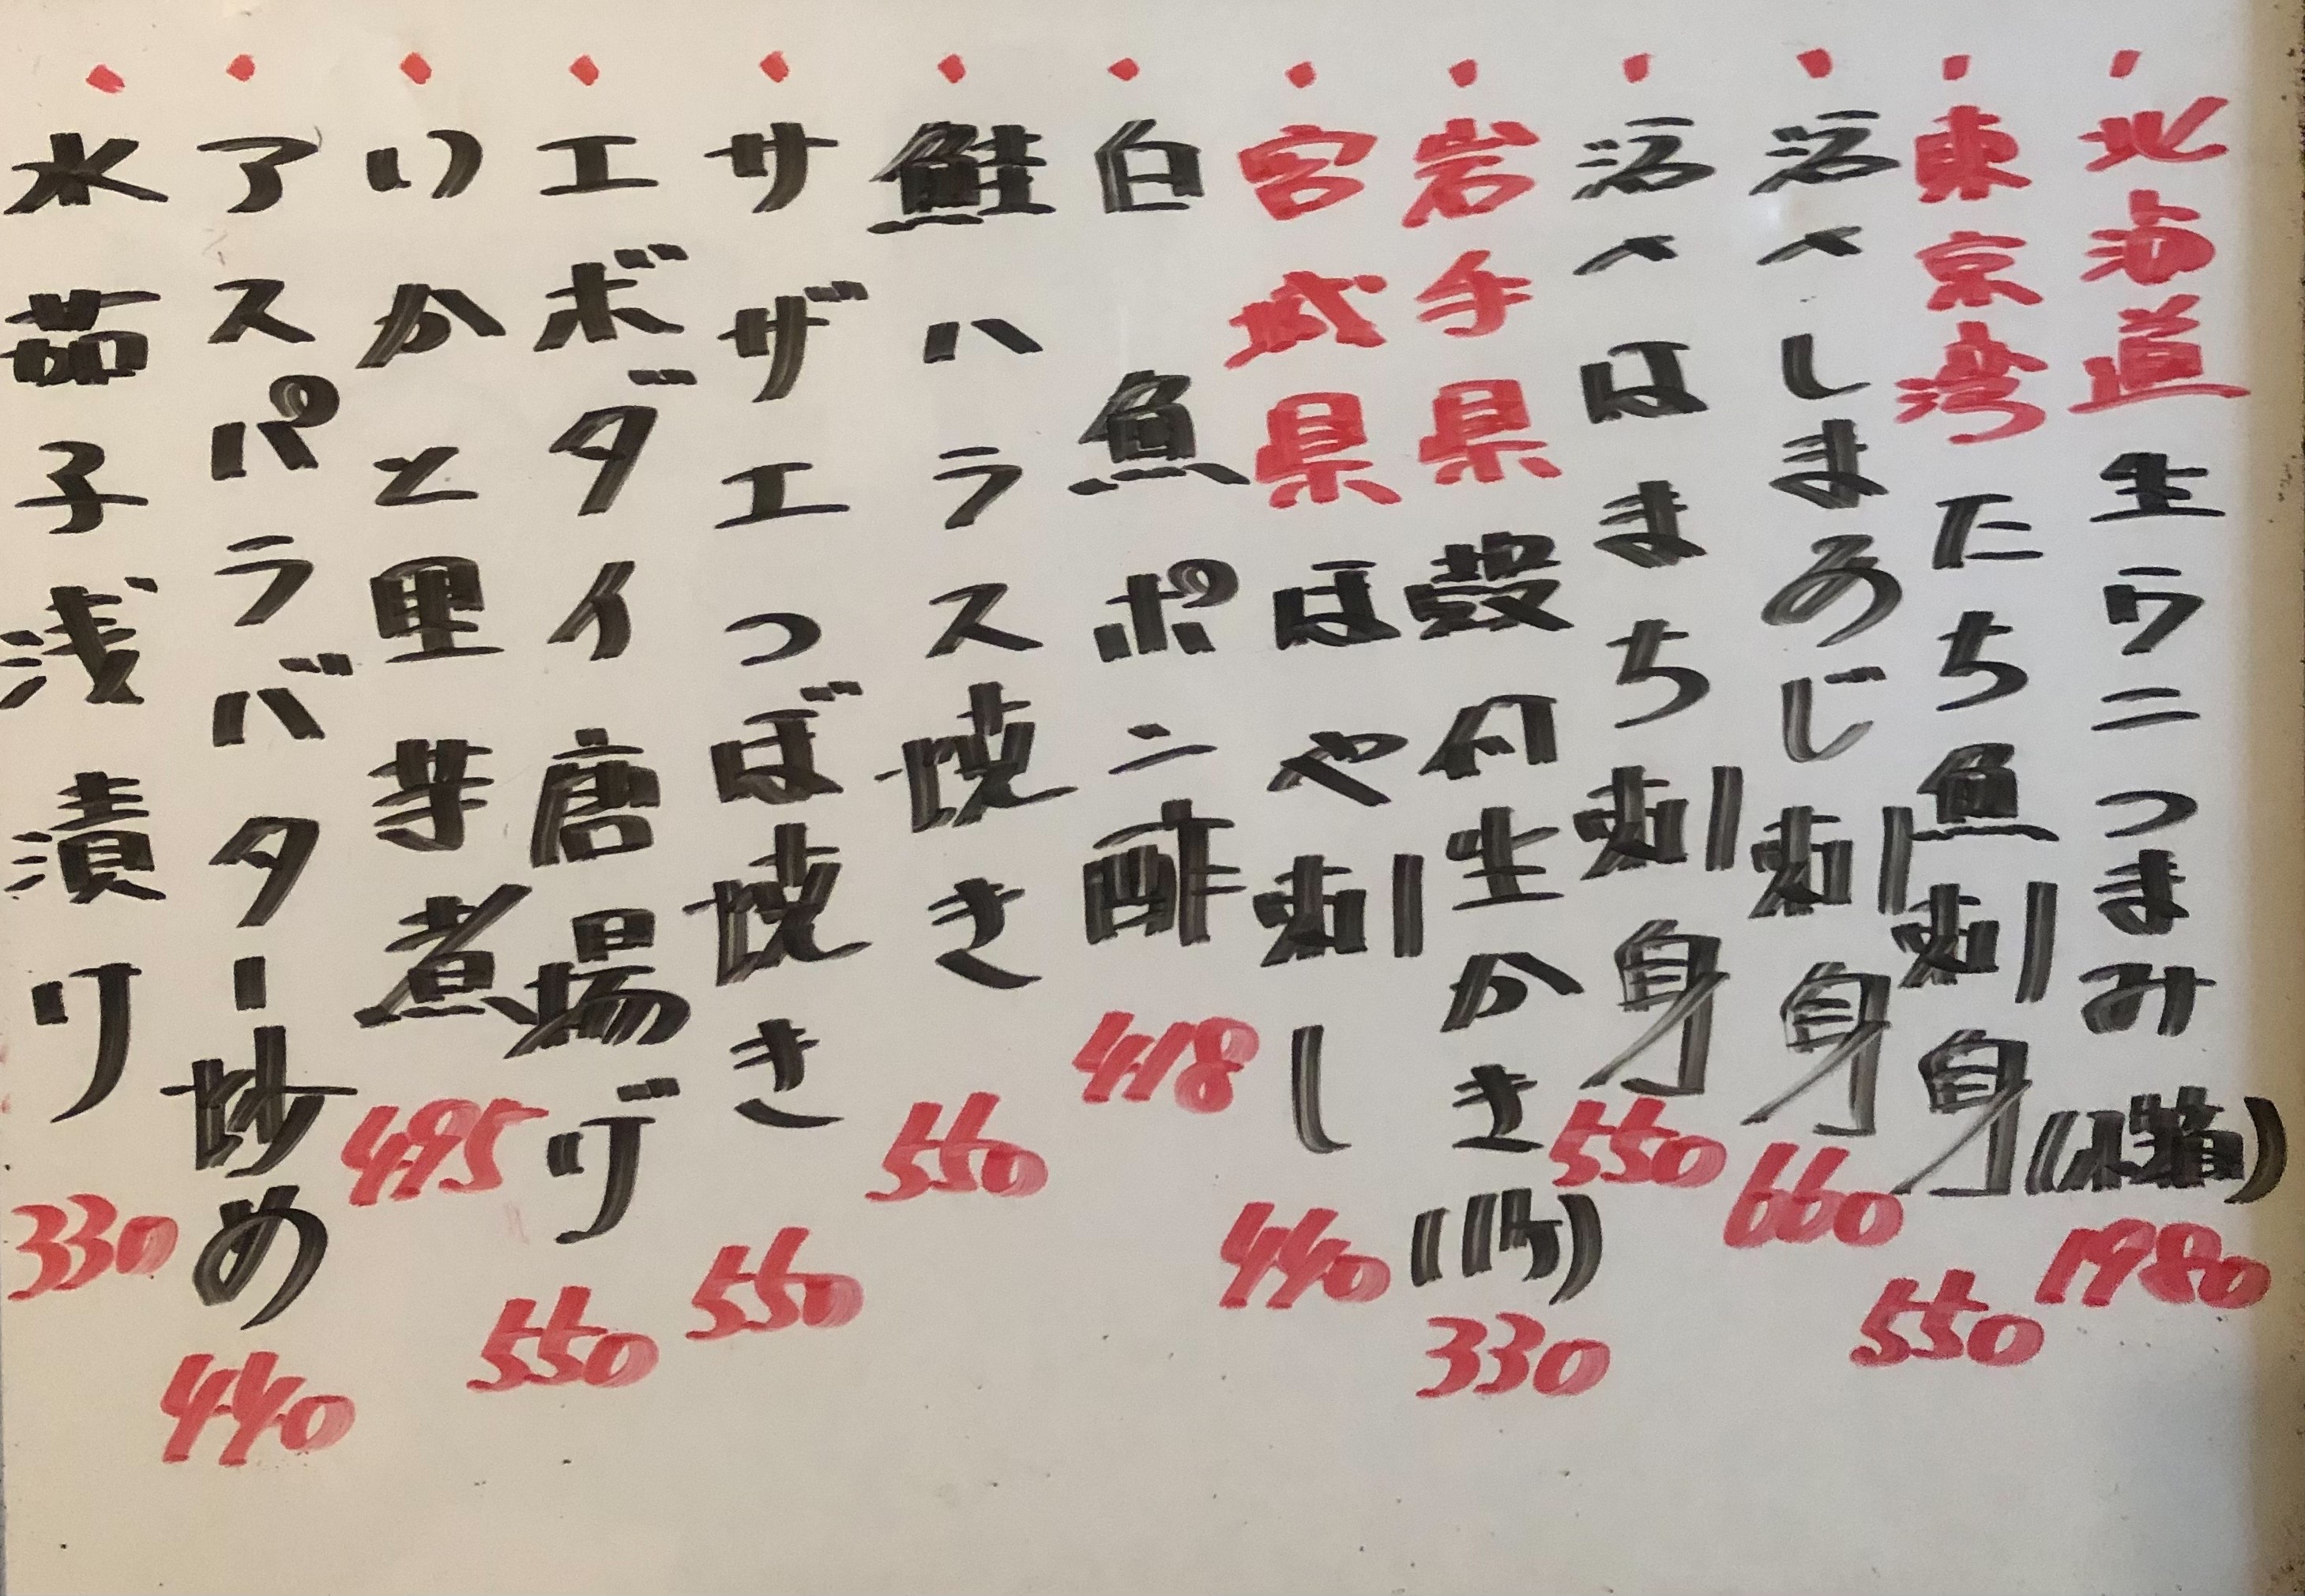 ・北海道生ウニつまみ 1980
・東京湾たち魚刺身 550
・活〆しまあじ刺身 660
・活〆はまち刺身 550
・岩手県殻付生かき(1ケ) 330
・宮城県ほや刺し 440
・白魚ポン酢 418
・鮭ハラス焼き 550
・サザエつぼ焼き 550
・エボダイ唐揚げ 550
・いかと里芋煮 495
・アスパラバター炒め 440
・水茄子浅漬け 330